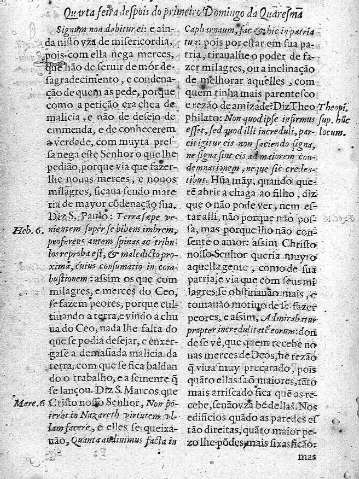 Quarta feira despois do primeiro Domingo da Quaresma
Signum non dabitur ei: e ain-
da nisso vsa de misericordia,
pois com ella nega merces,
que hão de seruir de mór de-
sagradecimento, e condena-
ção de quem as pede, porque
como a petição era chea de
malicia, e não de desejo de
emmenda, e de conhecerem
a verdade, com muyta pres-
sa nega este Senhor o que lhe
pedião, porque via que fazer-
lhe nouas merces, e nouos
milagres, ficaua sendo mate-
ria de mayor codenação sua.
Heb. 6.
Diz S. Paulo: Terra sæpe ve-
nientem super se bibens imbrem,
proferens autem spinas ac tribu-
los reproba est, & maledicto pro-
xima, cuius consumatio in com-
bustionem: assim os que com
milagres, e merces do Ceo,
se fazem peores, porque cul-
tiuando a terra, e vindo a chu-
ua do Ceo, nada lhe falta do
que se podia desejar, e enxer-
gase a demasiada malicia da
terra, com que se fica baldan-
do o trabalho, e a semente q̃
se lançou. Diz S. Marcos que
Marc. 6
Cristo nosso Senhor, Non po-
terat in Nazareth virtutem vl-
lam facere, e elles se queixa-
uão, Quanta audiuimus facta in
Caphurnaum, fac & hic in patria
tua: pois por estar em sua pa-
tria, tiraualhe o poder de fa-
zer milagres, ou a inclinação
de melhorar aquelles, com
quem tinha mais parentesco
e rezão de amizade? Diz Theo
Theopi.
philato: Non quod ipse infirmus
sup. hũc
esset, sed quod illi increduli, par-
locum.
cit igitur eis non faciendo signa,
ne signa sint eis ad maiorem con-
demnationem, neque sic credẽ-
tibus. Hũa mãy, quando que-
rẽ abrir a chaga ao filho, diz
que o não pode ver, nem es-
tar alli, não porque não pos-
sa, mas porque lho não con-
sente o amor: assim Christo
nosso Senhor queria muyto
aquella gente, como de sua
patria, e via que com seus mi-
lagres se obstinauão mais, e
tomauão motiuo de se fazer
peores, e assim, Admirabatur
propter incredulitatẽ eorum: don
de se vè, que quem recebe no
uas merces de Deos, hè rezão
q̃ viua muy precatado, pois
quãto ellas são maiores, tãto
mais arriscado fica que as re-
cebe, senão vza bẽ dellas. Nos
edificios quãdo as paredes es
tão direitas, quãto maior pe-
zo lhe põdes, mais fixas ficão:
mas